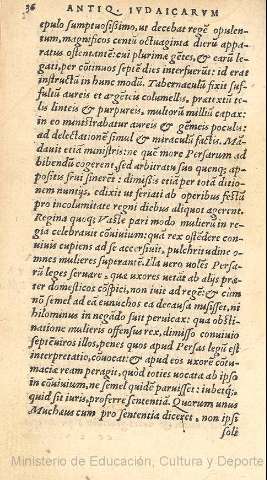 36 ANTIQ. IVDAICARVM
epulo sumptuosissimo, ut decebat regẽ opulen-
tum, magnificos centũ octuaginta dierũ appa-
ratus ostentante: cui plurimę gẽtes, & earũ le-
gati, per cõtinuos septẽ dies interfuerũt: id erat
instructũ in hunc modũ. Tabernaculũ fixit suf-
fultũ aureis et argẽteis columellis, prætextũ te-
lis linteis & purpureis, multorũ milliũ capax:
in eo mõnstrabatur aureis & gẽmeis pocula:
ad delectationẽ simul & miraculũ factis. Mã-
dauit etiã ministris: ne quẽ more Persarum ad
bibendũ cogerent, sed arbitratu suo quenq; ap-
positis frui sinerẽt: dimissis etiã per totã ditio-
nem nuntijs, edixit ut feriati ab operibus festũ
pro incolumitate regni diebus aliquot agerent.
Regina quoq; Vaste pari modo mulierũ in re-
gia celebrauit cõuiuium: quã rex ostẽdere con-
uiuis cupiens ad se accersiuit, pulchritudine o-
mnes mulieres superantẽ. Illa uero uolẽs Persa-
rũ leges seruare, quæ uxores uetãt ab alijs præ-
ter domesticos cõspici, non iuit ad regẽ: & cùm
nõ semel ad eã eunuchos ea de causa misisset, ni
hilominus in negãdo fuit peruicax: qua obsti-
natione mulieris offensus rex, dimisso conuiuio
septẽuiros illos, penes quos apud Persas legũ est
interpretatio, cõuocat: & apud eos uxorẽ cõtu-
maciæ ream peragit, quòd toties uocata ab ipso
in cõuiuium, ne semel quidẽ paruisset: iubetq;,
quid sit iuris, proferre sententiã. Quorum unus
Muchæus cum pro sententia diceret, non ipsi
soli
Ministerio de Educación, Cultura y Deporte